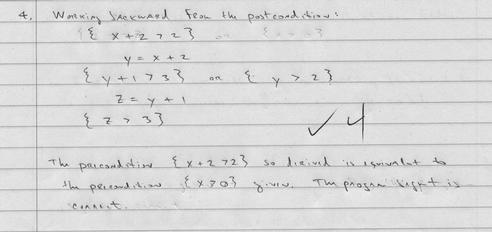 4. Working backward from the postcondition:
{ x + 2 > 2 }
y = x + 2
{ y + 1 > 3 } or { y > 2 }
z = y + 1
{ z > 3 }
✓ 4
The precondition { x + 2 > 2 } so derived is equivalent to
the precondition { x > 0 } given. The program segment is
correct.